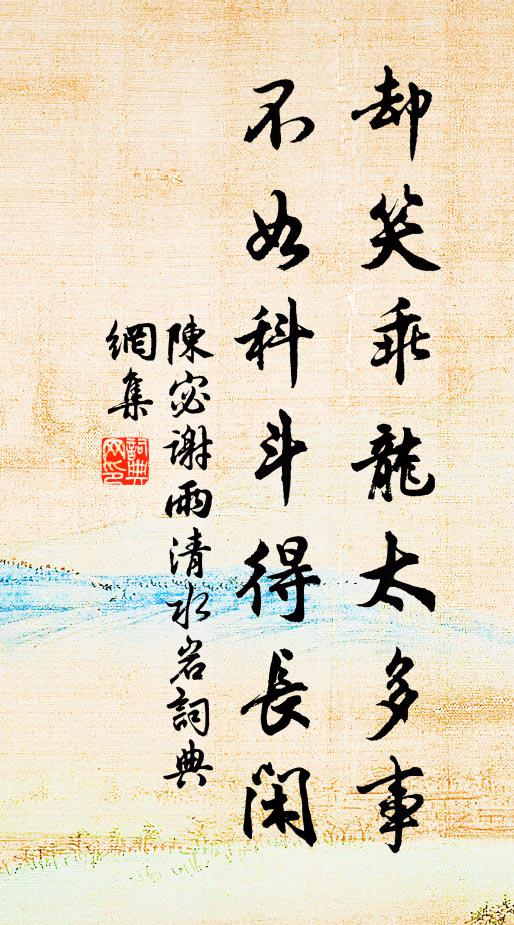 却笑乖龍太多事
不如科斗得長閑
陳宓謝雨清水岩詞典
網集
詞典